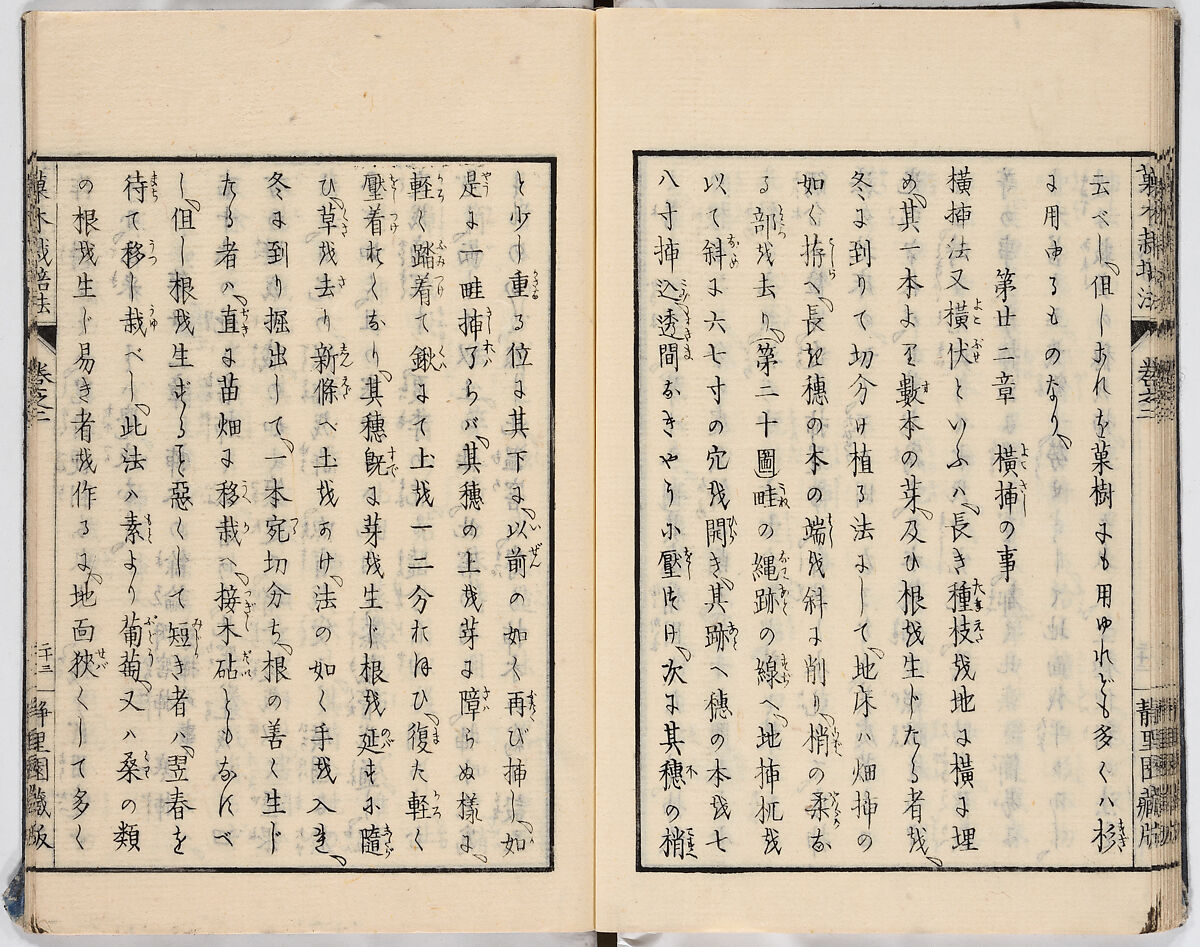 菓木栽培法 巻之三 靜里園藏版
云べし、但しあれを菓樹にも用ゆれども多くハ杉
に用ゆるものなり、
第廿二章 橫揷の事
橫揷法又橫伏といふハ、長き種枝を地に橫に埋
め、其一本より數本の芽、及ひ根を生じたる者を、
冬に到りて切分け植る法にして、地床ハ畑揷の
如く拵へ、長き穂の本の端を斜に削り、梢の柔な
る部を去り、第二十圖畦の縄跡の線へ、地揷杌を
以て斜に六七寸の穴を開き、其跡へ穂の本を七
八寸揷込、透間なきやうに壓つけ、次に其穗の梢
と少し重る位に其下に、以前の如く再び揷し、如
是に一畦揷了らバ、其穗の上を芽に障らぬ樣に、
軽く踏着て鍬にて土を一二分れほひ、復た軽く
壓着れくなり、其穗既に芽を生じ根を延すに隨
ひ、草を去り新條へ土をかけ、法の如く手を入れ、
冬に到り掘出して、一本宛切分ち、根の善く生じ
たる者ハ、直に苗畑に移栽へ、接木砧ともなすべ
し、但し根を生ぜざると惡くして短き者ハ、翌春を
待て移し栽べし、此法ハ素より葡萄、又ハ桑の類
の根を生じ易き者を作るに、地面狹くして多く
菓木栽培法 巻之三 二十三 靜里園藏版